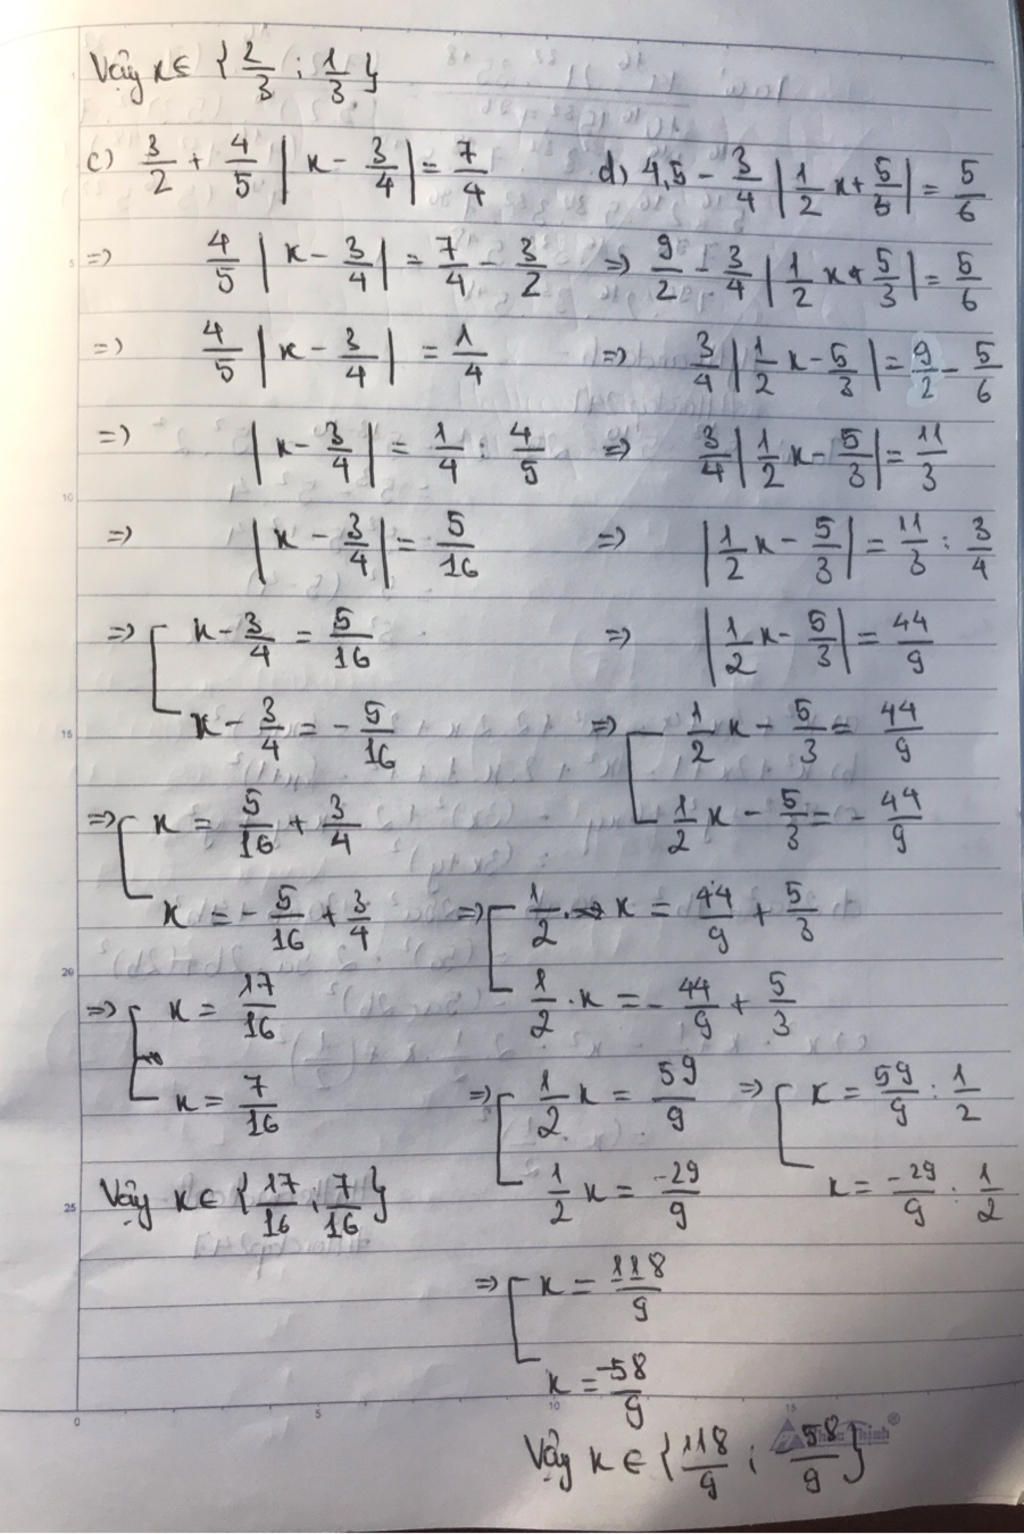 Vậy x ∈ {2/3 ; 1/3}
c) 3/2 + 4/5 |x - 3/4| = 7/4
=> 4/5 |x - 3/4| = 7/4 - 3/2
=> 4/5 |x - 3/4| = 1/4
=> |x - 3/4| = 1/4 : 4/5
=> |x - 3/4| = 5/16
=> [ x - 3/4 = 5/16
x - 3/4 = - 5/16
=> [ x = 5/16 + 3/4
x = - 5/16 + 3/4
=> [ x = 17/16
x = 7/16
Vậy x ∈ {17/16 ; 7/16}
d) 4,5 - 3/4 |1/2 x + 5/3| = 5/6
=> 9/2 - 3/4 |1/2 x + 5/3| = 5/6
=> 3/4 |1/2 x - 5/3| = 9/2 - 5/6
=> 3/4 |1/2 x - 5/3| = 11/3
=> |1/2 x - 5/3| = 11/3 : 3/4
=> |1/2 x - 5/3| = 44/9
=> [ 1/2 x - 5/3 = 44/9
1/2 x - 5/3 = - 44/9
=> [ 1/2 . x = 44/9 + 5/3
1/2 . x = - 44/9 + 5/3
=> [ 1/2 x = 59/9
1/2 x = -29/9
=> [ x = 59/9 : 1/2
x = -29/9 : 1/2
=> [ x = 118/9
x = -58/9
Vậy x ∈ {118/9 ; -58/9}
5
10
15
20
25
0
5
10
15